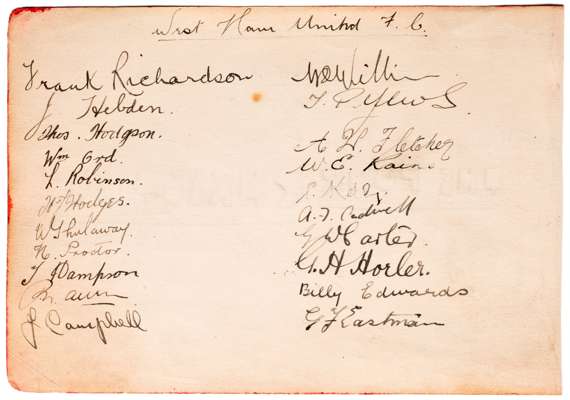 West Ham United F. C.
Frank Richardson
J Hebden.
Thos. Hodgson.
Wm Ord.
L. Robinson.
W Hodges.
W Thirlaway.
N. Proctor.
T Hampson
J Campbell
T. P Yews
A H. Fletcher
W. E. Kaine
A. F. Cadwell
G W Carter.
G. H Horler.
Billy Edwards
G F Eastman